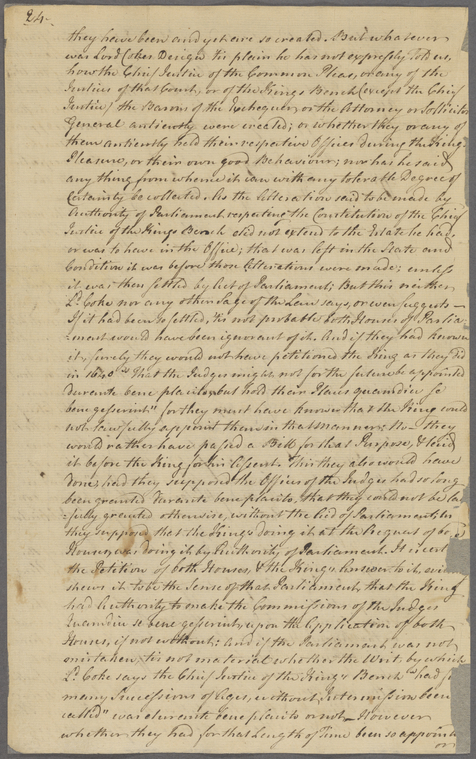 24.
they have been and yet are so created. But whatever
was Lord Cokes Design 'tis plain he has not expressly told us,
how the Chief Justice of the Common Pleas, or any of the
Justices of that Court, or of the Kings Bench (except the Chief
Justice) the Barons of the Exchequer, or the Attorney or Sollicitor
General antiently were created; or whether they or any of
them antiently held their respective Offices during the King's
Pleasure, or their own good Behaviour; nor has he said
any thing from whence it can with any tolerable Degree of
Certainty be collected. As the Alteration said to be made by
Authority of Parliament respecting the Constitution of the Chief
Justice of the Kings Bench did not extend to the Estate he had
or was to have in the Office; that was left in the State and
Condition it was before those Alterations were made; unless
it was then settled by Act of Parliament; But this neither
Ld. Coke nor any other Sage of the Law says, or even suggests —
If it had been so settled, 'tis not probable both Houses of Parlia
-ment would have been ignorant of it. And if they had known
it, surely they would not have petitioned the King as they did
in 1640 "That the Judges might not for the future be appointed
durante bene placito but hold their Places quamdiu se
bene gesserint" for they must have known that the King could
not lawfully appoint them in that manner; they
would rather have passed a Bill for that Purpose, & laid
it before the King for his Assent. This they also would have
done, had they supposed the Offices of the Judges had so long
been granted durante bene placito, that they could not be law
-fully granted otherwise, without the Aid of Parliament;
they supposed that the King's doing it at the Request of both
Houses was doing it by Authority of Parliament. It is cert
the Petition of both Houses, & the King's Answer to it,
shews it to be the Sense of that Parliament, that the King
had Authority to make the Commissions of the Judges
Quamdiu se bene gesserint, upon the Application of both
Houses, if not without: And if the Parliament was not
mistaken, 'tis not material whether the Writ by which
Ld. Coke says the Chief Justice of the King's Bench "had for
many Successions of Ages, without Intermission been
called" was durante bene placito or not — However
whether they had for that Length of Time been so appointed
or